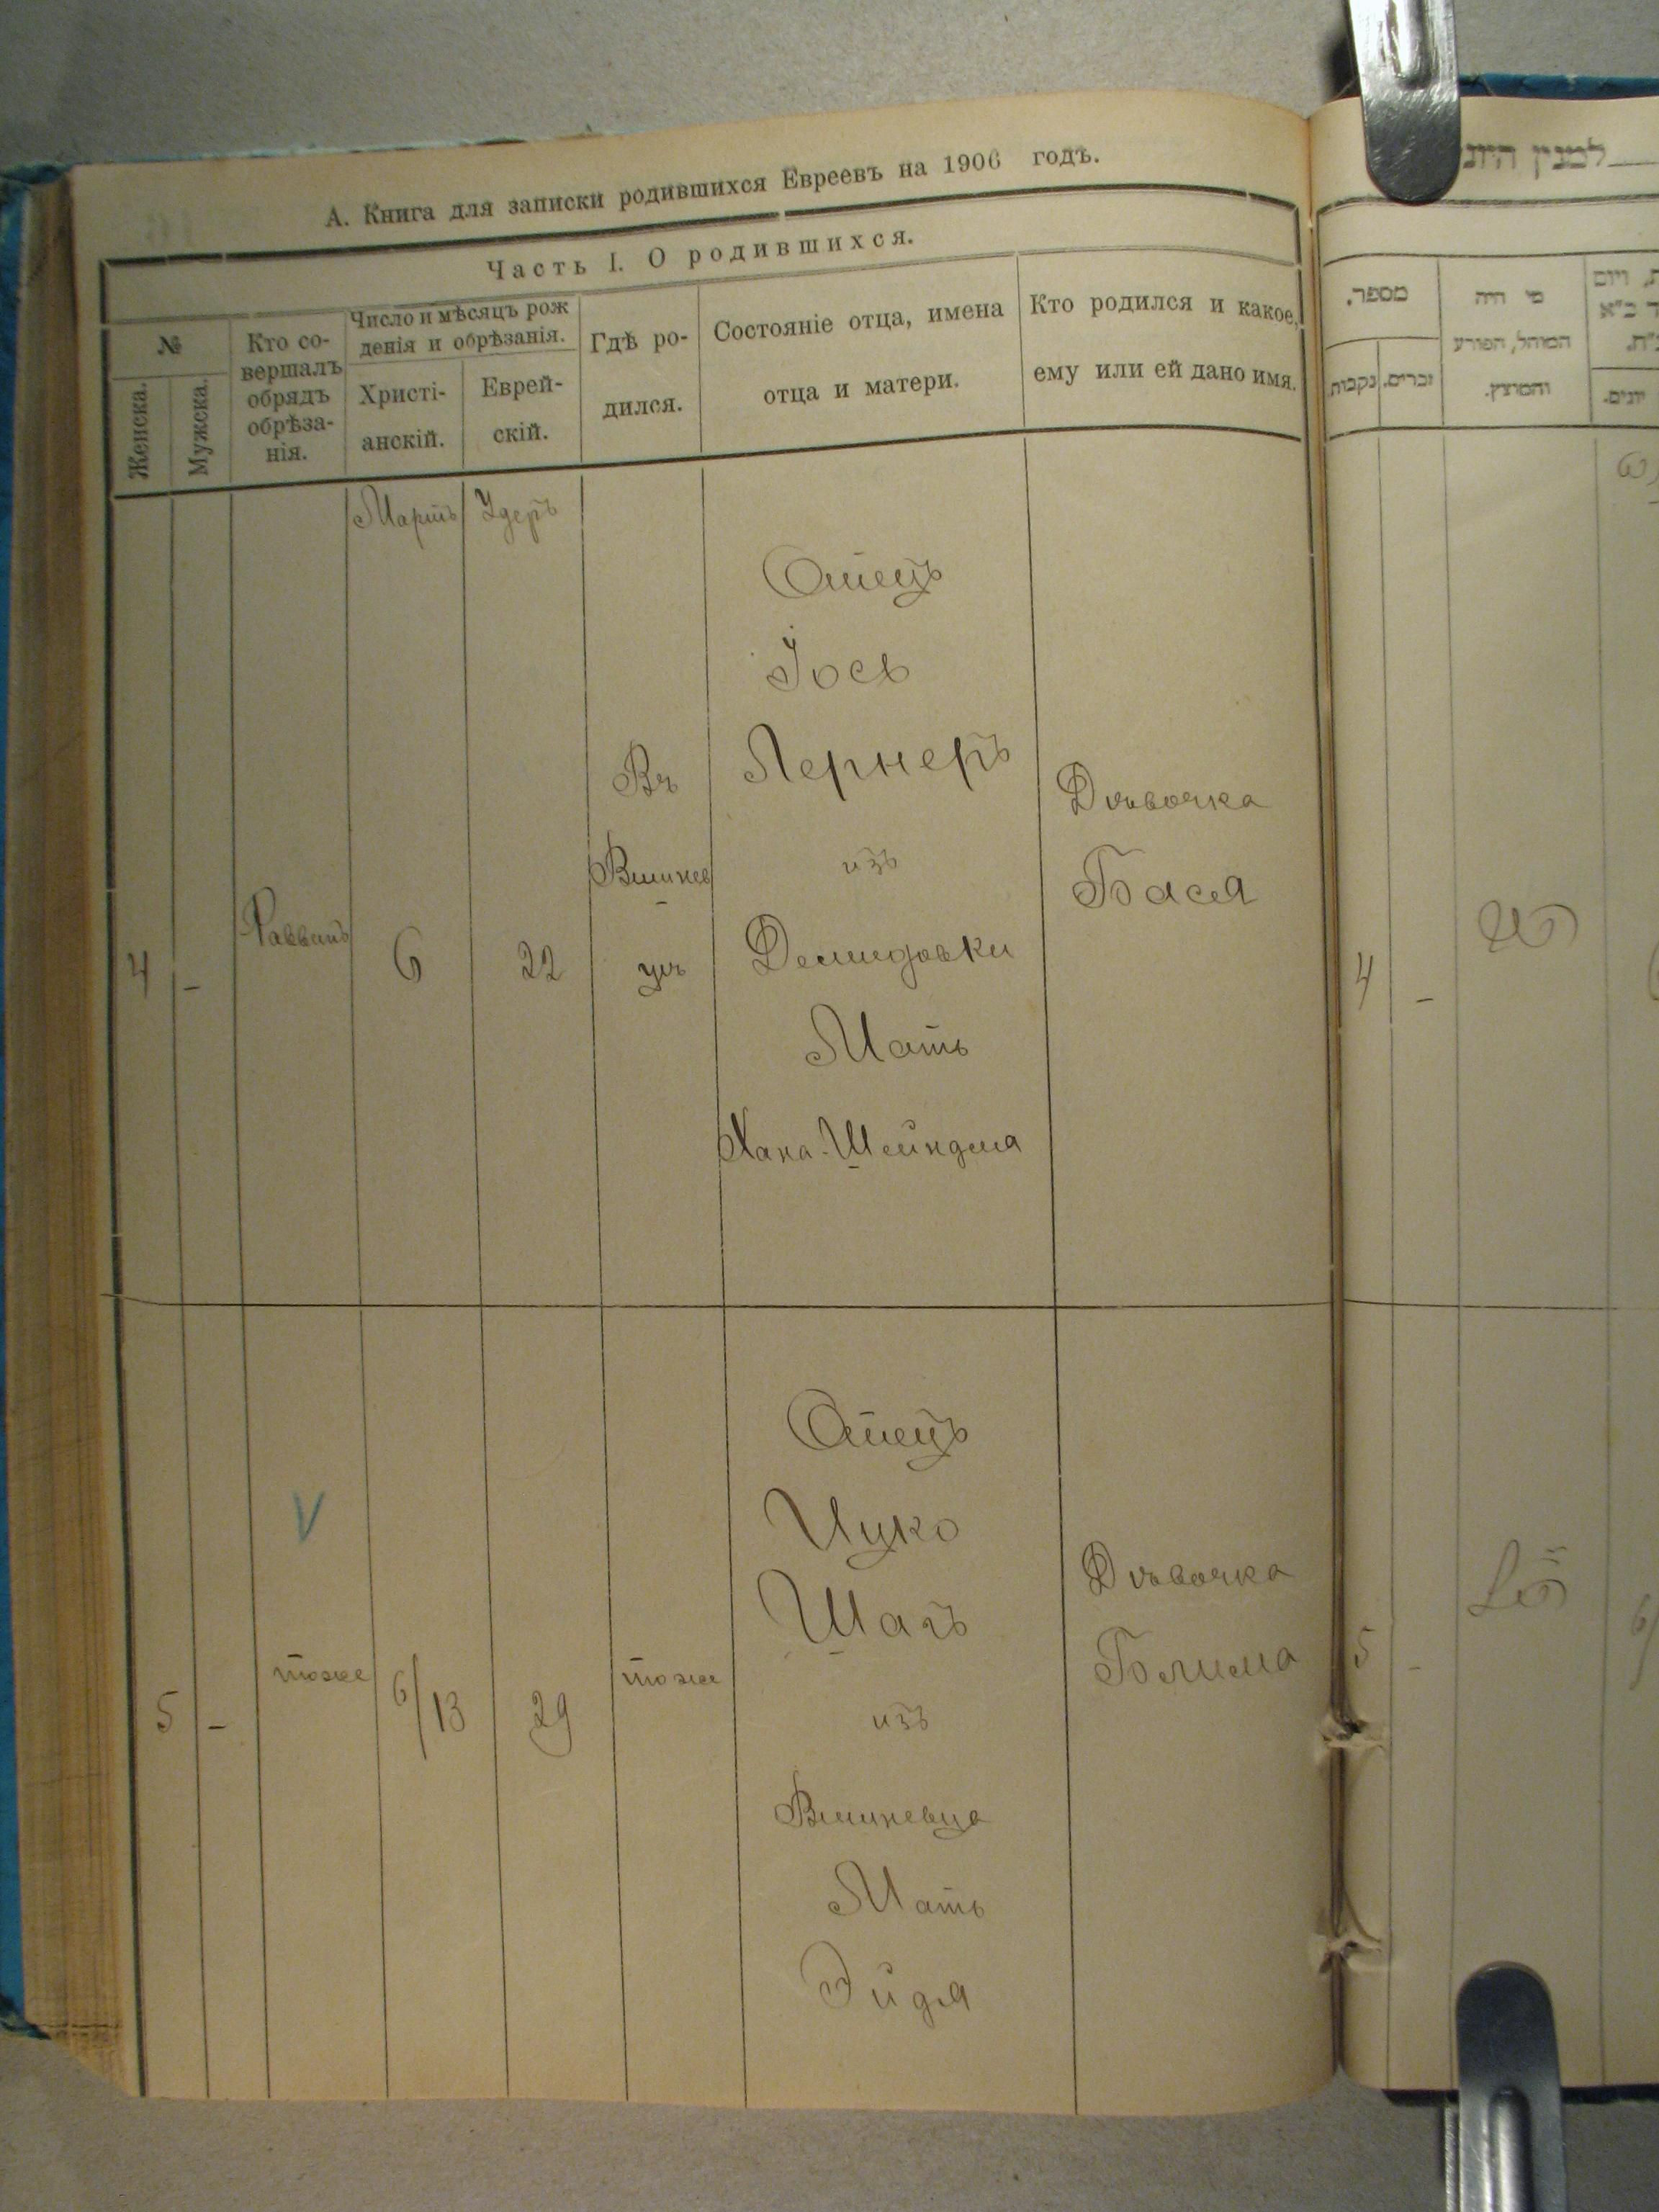 А. Книга для записки родившихся Евреевъ на 1906 годъ.
Часть I. О родившихся.
№
Женска.
Мужска.
Кто со-
вершалъ
обрядъ
обрѣза-
нія.
Число и мѣсяцъ рож
денія и обрѣзанія.
Христі-
анскій.
Еврей-
скій.
Гдѣ ро-
дился.
Состояніе отца, имена
отца и матери.
Кто родился и какое,
ему или ей дано имя.
Мартъ
Адеръ
4
-
Раввинъ
6
22
Въ
Вишнев
цѣ
Отецъ
Іось
Лернеръ
изъ
Демидовки
Мать
Хана-Шейндля
Дѣвочка
Бася
V
5
-
тоже
6/13
29
тоже
Отецъ
Ицко
Шагъ
изъ
Вишневца
Мать
Эйдя
Дѣвочка
למנין היונ
מספר.
נקבות
זכרים.
מי היה
המוהל, הפורע
והמוצץ.
יונים.
4
-
5
-